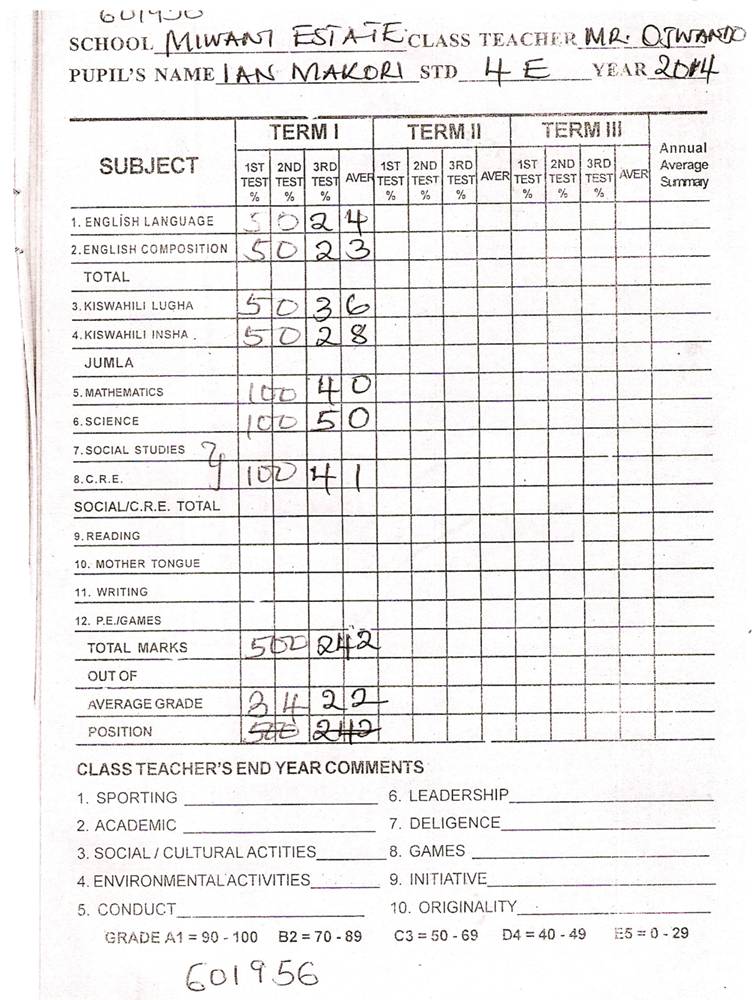 SCHOOL MIWANI ESTATE CLASS TEACHER MR. OJWANDO
PUPIL'S NAME IAN MAKORI STD 4 E YEAR 2014
SUBJECT TERM I TERM II TERM III Annual Average Summary
1ST TEST % 2ND TEST % 3RD TEST % AVER 1ST TEST % 2ND TEST % 3RD TEST % AVER 1ST TEST % 2ND TEST % 3RD TEST % AVER
1. ENGLISH LANGUAGE 50 24
2. ENGLISH COMPOSITION 50 23
TOTAL
3. KISWAHILI LUGHA 50 36
4. KISWAHILI INSHA . 50 28
JUMLA
5. MATHEMATICS 100 40
6. SCIENCE 100 50
7. SOCIAL STUDIES
8. C.R.E. 100 41
SOCIAL/C.R.E. TOTAL
9. READING
10. MOTHER TONGUE
11. WRITING
12. P.E./GAMES
TOTAL MARKS 500 242
OUT OF
AVERAGE GRADE 34 22
POSITION 500 242
CLASS TEACHER'S END YEAR COMMENTS
1. SPORTING 6. LEADERSHIP
2. ACADEMIC 7. DELIGENCE
3. SOCIAL / CULTURAL ACTITIES 8. GAMES
4. ENVIRONMENTAL ACTIVITIES 9. INITIATIVE
5. CONDUCT 10. ORIGINALITY
GRADE A1 = 90 - 100 B2 = 70 - 89 C3 = 50 - 69 D4 = 40 - 49 E5 = 0 - 29
601956